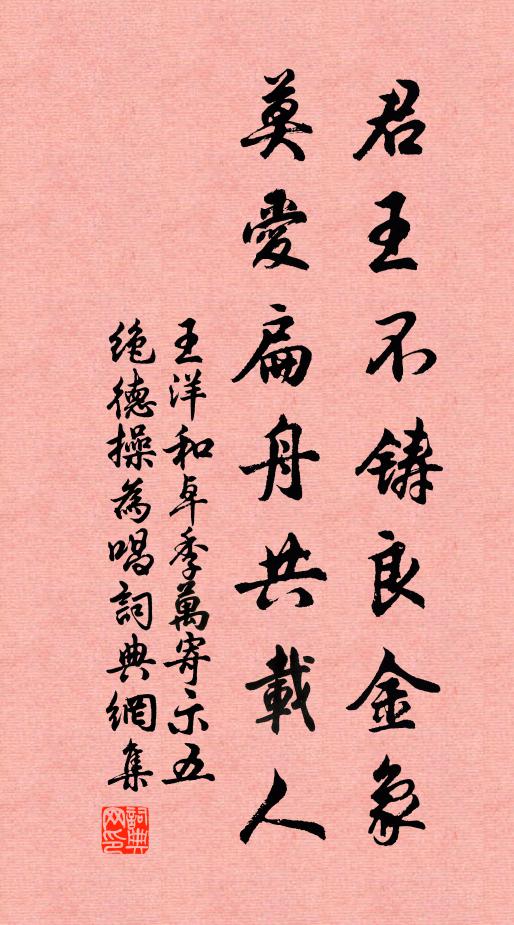 君王不铸良金象
莫愛扁舟共載人
王洋和卓季萬寄示五
绝德操為唱詞典網集
詞典
网印